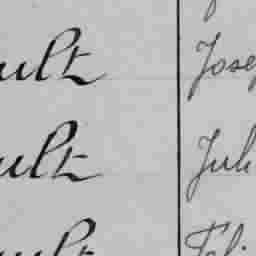 ult Jose
ult Juli
ult Féli